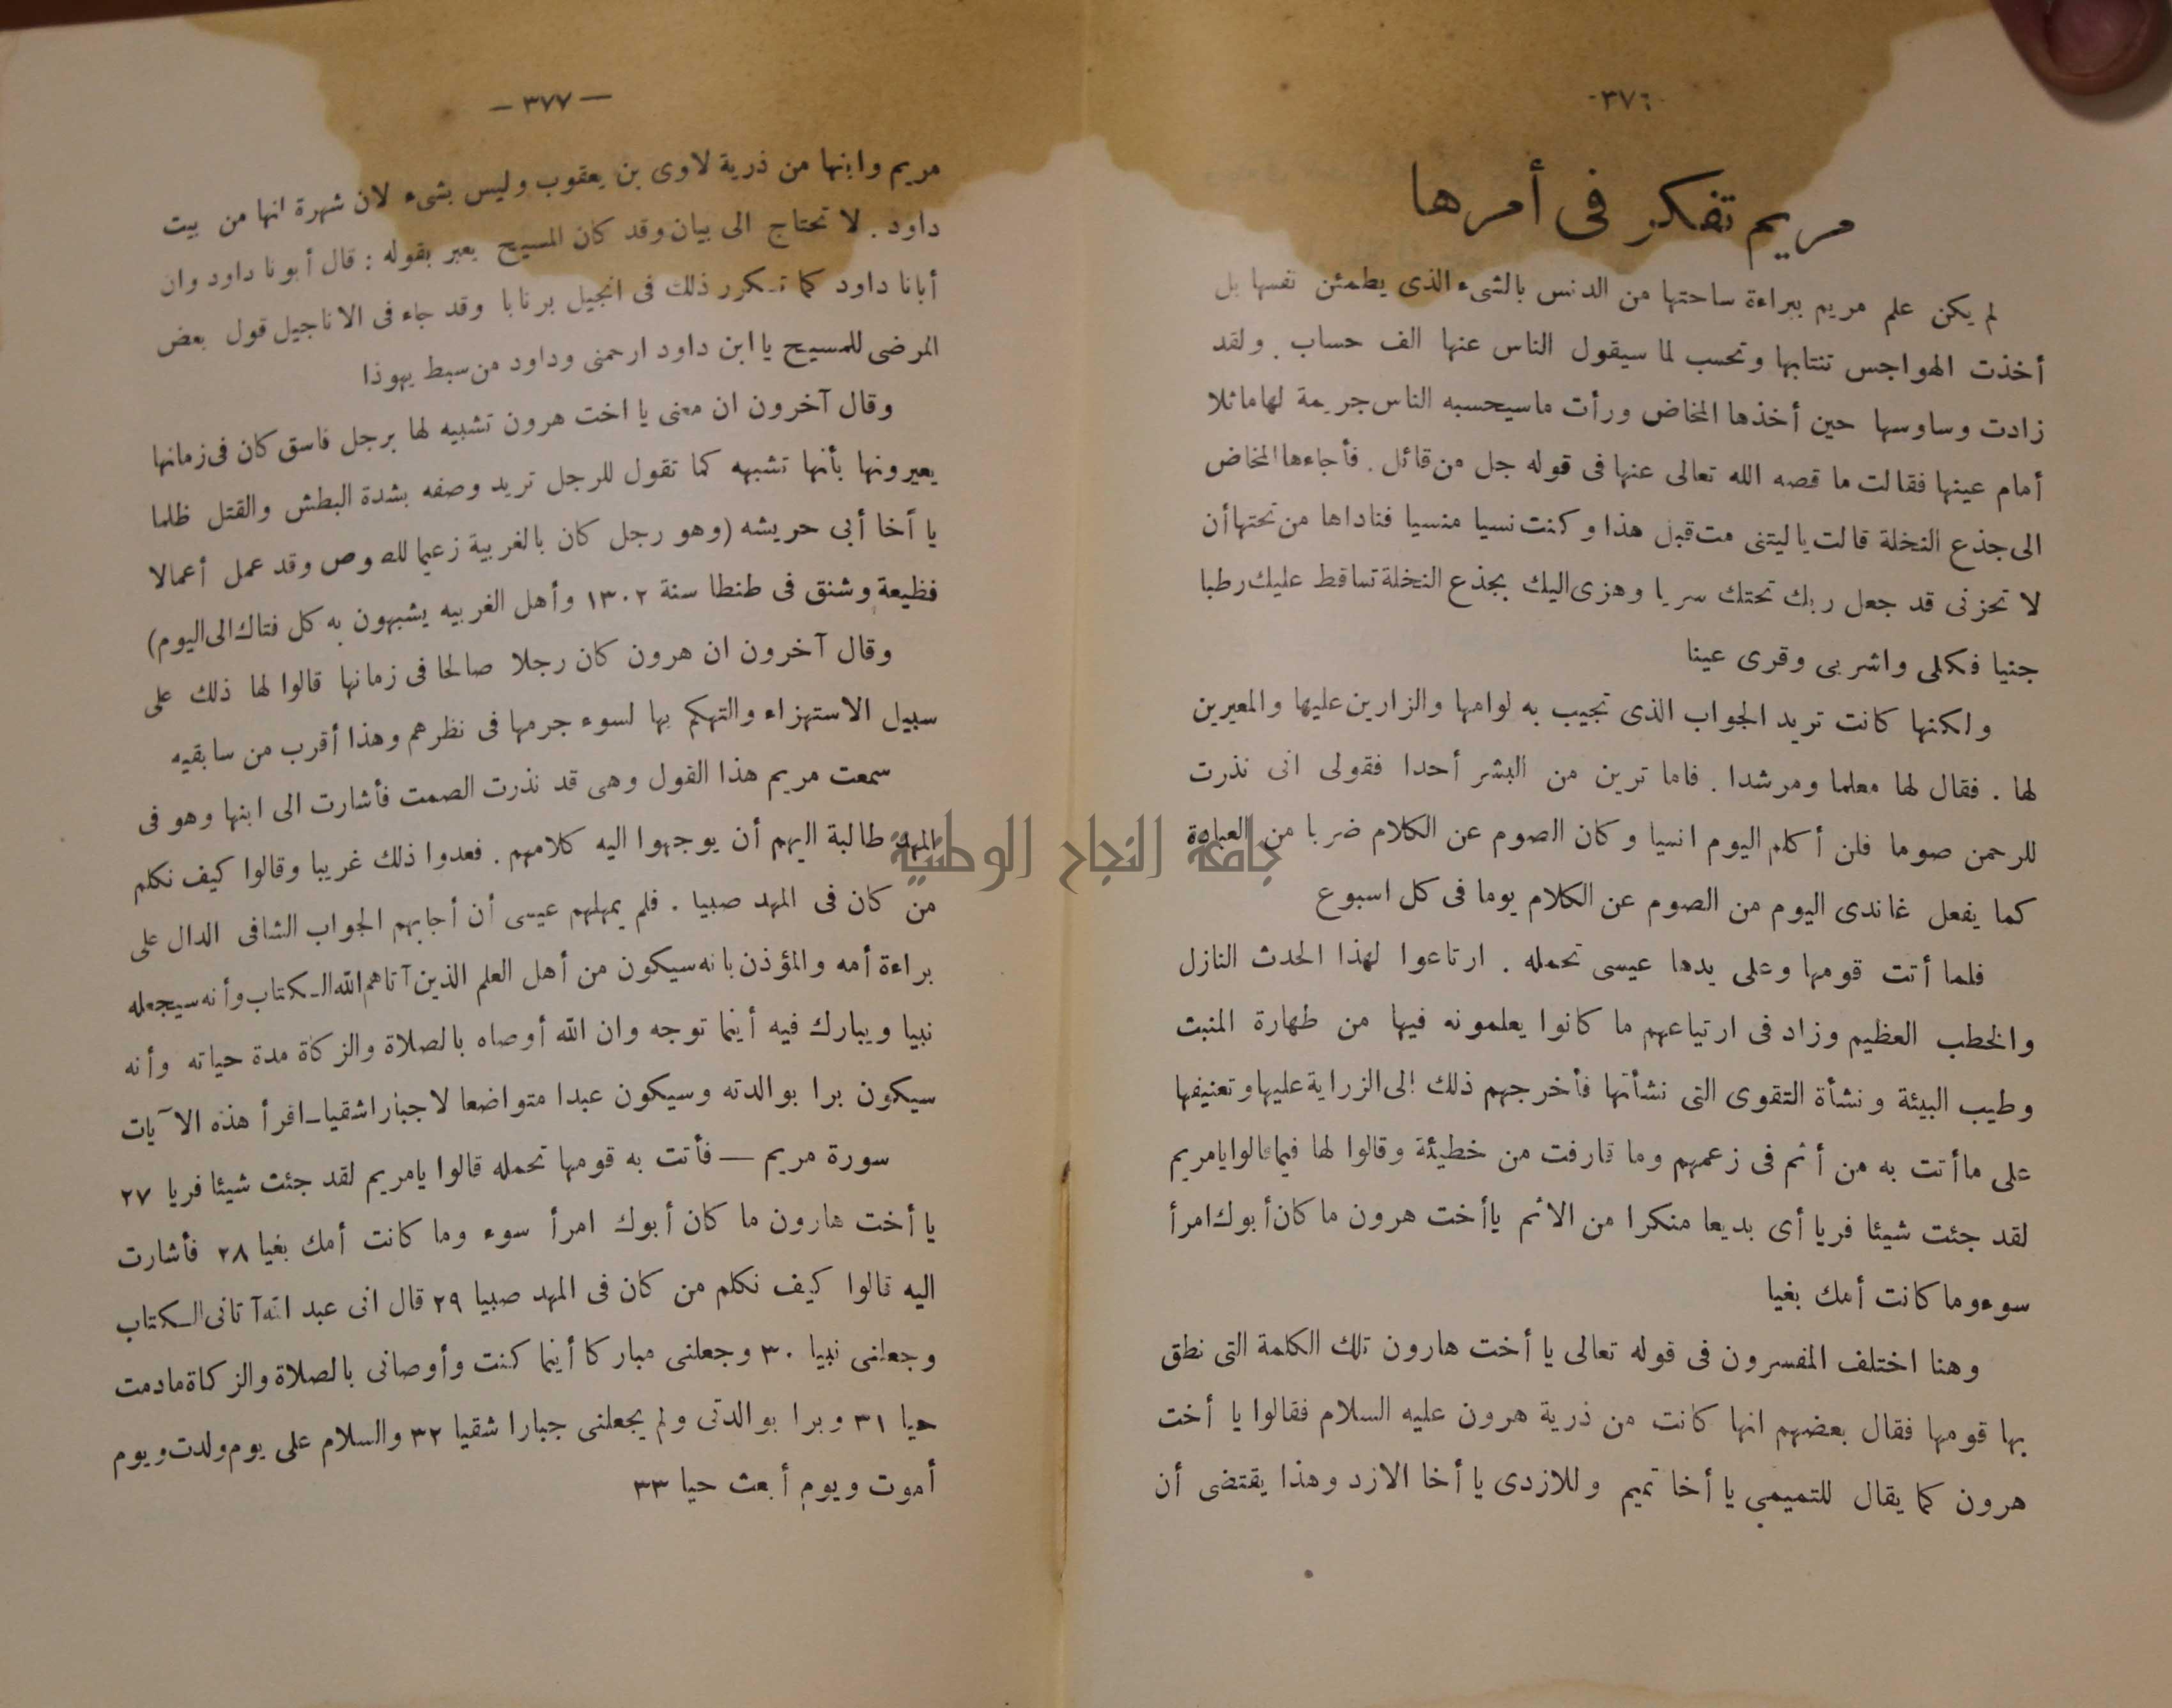 ٣٧٦
مريم تفكر فى أمرها
لم يكن علم مريم ببراءة ساحتها من الدنس بالشىء الذى يطمئن نفسها بل
أخذت الهواجس تنتابها وتحسب لما سيقول الناس عنها الف حساب . ولقد
زادت وساوسها حين أخذها المخاض ورأت ماسيحسبه الناس جريمة لها ماثلا
أمام عينها فقالت ما قصه الله تعالى عنها فى قوله جل من قائل . فأجاءها المخاض
الى جذع النخلة قالت ياليتنى مت قبل هذا وكنت نسيا منسيا فناداها من تحتها أن
لا تحزنى قد جعل ربك تحتك سريا وهزى اليك بجذع النخلة تساقط عليك رطبا
جنيا فكلى واشربى وقرى عينا
ولكنها كانت تريد الجواب الذى تجيب به لوامها والزارين عليها والمعيرين
لها . فقال لها معلما ومرشدا . فاما ترين من البشر أحدا فقولى انى نذرت
للرحمن صوما فلن أكلم اليوم انسيا وكان الصوم عن الكلام ضربا من العبادة
كما يفعل غاندى اليوم من الصوم عن الكلام يوما فى كل اسبوع
فلما أتت قومها وعلى يدها عيسى تحمله . ارتاعوا لهذا الحدث النازل
والخطب العظيم وزاد فى ارتياعهم ما كانوا يعلمونه فيها من طهارة المنبت
وطيب البيئة ونشأة التقوى التى نشأتها فأخرجهم ذلك الى الزراية عليها وتعنيفها
على ماأتت به من أثم فى زعمهم وما قارفت من خطيئة وقالوا لها فيما قالوا يامريم
لقد جئت شيئا فريا أى بديعا منكرا من الاثم ياأخت هرون ما كان أبوك امرأ
سوء وما كانت أمك بغيا
وهنا اختلف المفسرون فى قوله تعالى يا أخت هارون تلك الكلمة التى نطق
بها قومها فقال بعضهم انها كانت من ذرية هرون عليه السلام فقالوا يا أخت
هرون كما يقال للتميمى يا أخا تميم وللازدى يا أخا الازد وهذا يقتضى أن
— ٣٧٧ —
مريم وابنها من ذرية لاوى بن يعقوب وليس بشىء لان شهرة انها من بيت
داود . لا تحتاج الى بيان وقد كان المسيح يعبر بقوله : قال أبونا داود وان
أبانا داود كما تكرر ذلك فى انجيل برنابا وقد جاء فى الاناجيل قول بعض
المرضى للمسيح يا ابن داود ارحمنى وداود من سبط يهوذا
وقال آخرون ان معنى يا اخت هرون تشبيه لها برجل فاسق كان فى زمانها
يعيرونها بأنها تشبهه كما تقول للرجل تريد وصفه بشدة البطش والقتل ظلما
يا أخا أبى حريشه (وهو رجل كان بالغربية زعيما للصوص وقد عمل أعمالا
فظيعة وشنق فى طنطا سنة ١٣٠٢ وأهل الغربيه يشبهون به كل فتاك الى اليوم)
وقال آخرون ان هرون كان رجلا صالحا فى زمانها قالوا لها ذلك على
سبيل الاستهزاء والتهكم بها لسوء جرمها فى نظرهم وهذا أقرب من سابقيه
سمعت مريم هذا القول وهى قد نذرت الصمت فأشارت الى ابنها وهو فى
المهد طالبة اليهم أن يوجهوا اليه كلامهم . فعدوا ذلك غريبا وقالوا كيف نكلم
من كان فى المهد صبيا . فلم يمهلهم عيسى أن أجابهم الجواب الشافى الدال على
براءة أمه والمؤذن بانه سيكون من أهل العلم الذين آتاهم الله الكتاب وأنه سيجعله
نبيا ويبارك فيه أينما توجه وان الله أوصاه بالصلاة والزكاة مدة حياته وأنه
سيكون برا بوالدته وسيكون عبدا متواضعا لا جبارا شقيا ــ اقرأ هذه الآيات
سورة مريم — فأتت به قومها تحمله قالوا يامريم لقد جئت شيئا فريا ٢٧
يا أخت هارون ما كان أبوك امرأ سوء وما كانت أمك بغيا ٢٨ فأشارت
اليه قالوا كيف نكلم من كان فى المهد صبيا ٢٩ قال انى عبد الله آتانى الكتاب
وجعلنى نبيا ٣٠ وجعلنى مباركا أينما كنت وأوصانى بالصلاة والزكاة مادمت
حيا ٣١ وبرا بوالدتى ولم يجعلنى جبارا شقيا ٣٢ والسلام على يوم ولدت ويوم
أموت ويوم أبعث حيا ٣٣
جامعة النجاح الوطنية